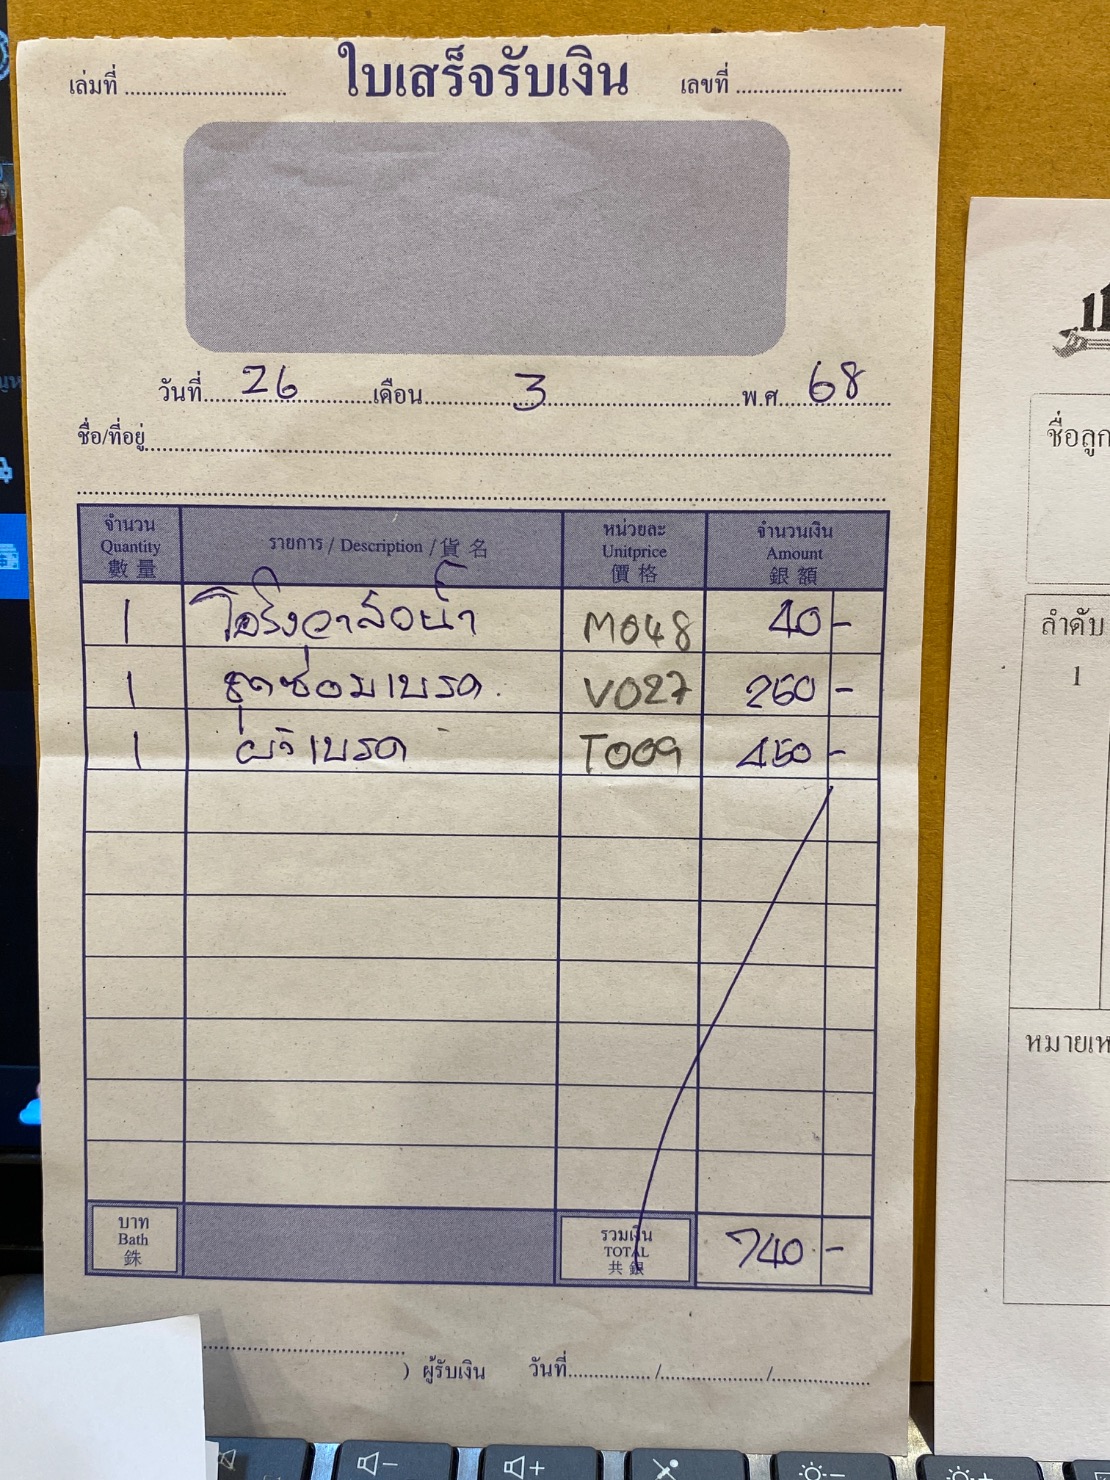 ใบเสร็จรับเงิน
เล่มที่ เลขที่
วันที่ 26 เดือน 3 พ.ศ. 68
ชื่อ/ที่อยู่
จำนวน Quantity 數量 รายการ / Description / 貨名 หน่วยละ Unitprice 價格 จำนวนเงิน Amount 銀額
1 โอริงวาล์วน้ำ M048 40 -
1 ชุดซ่อมเบรค V027 250 -
1 ผ้าเบรค T009 450 -
บาท Bath 銖 รวมเงิน TOTAL 共銀 740 -
) ผู้รับเงิน วันที่ / /
ชื่อลูก
ลำดับ
1
หมายเห